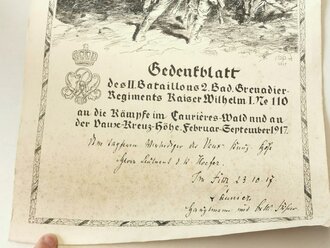 Gedenkblatt
des II. Bataillons 2. Bad. Grenadier-
Regiments Kaiser Wilhelm I. No 110
an die Kämpfe im Caurières-Wald und an
der Vaux-Kreuz-Höhe. Februar-September 1917.
Dem tapferen Verteidiger der Vaux-Kreuz-Höhe
Herrn Leutnant d. R. Hoefer
Im Felde 23.10.17
Hauptmann und